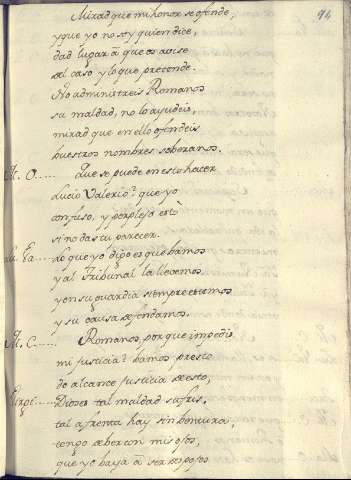 94
Mirad que mi honor se ofende,
y que yo no soy quien dice,
dad lugar â que os avise
del caso y lo que pretende.
No administreis Romanos
su maldad, no lo ayudeis,
mirad que en ello ofendeis
buestros nombres soberanos.
M. O. Que se puede en esto hacer
Lucio Valerio? que yo
confuso, y perplejo estò
si no das tu parecer.
Lu. Va. Lo que yo digo es que bamos
y al Tribunal la llevemos,
y en su guardia siempre estemos
y su causa defendamos.
M. C. Romanos, porque impedis
mi justicia? bamos presto
do alcance justicia de esto,
Virgi. Dioses tal maldad sufris,
tal afrenta hay sin bentura,
tengo de ber con mis ojos,
que yo baya â ser despojos